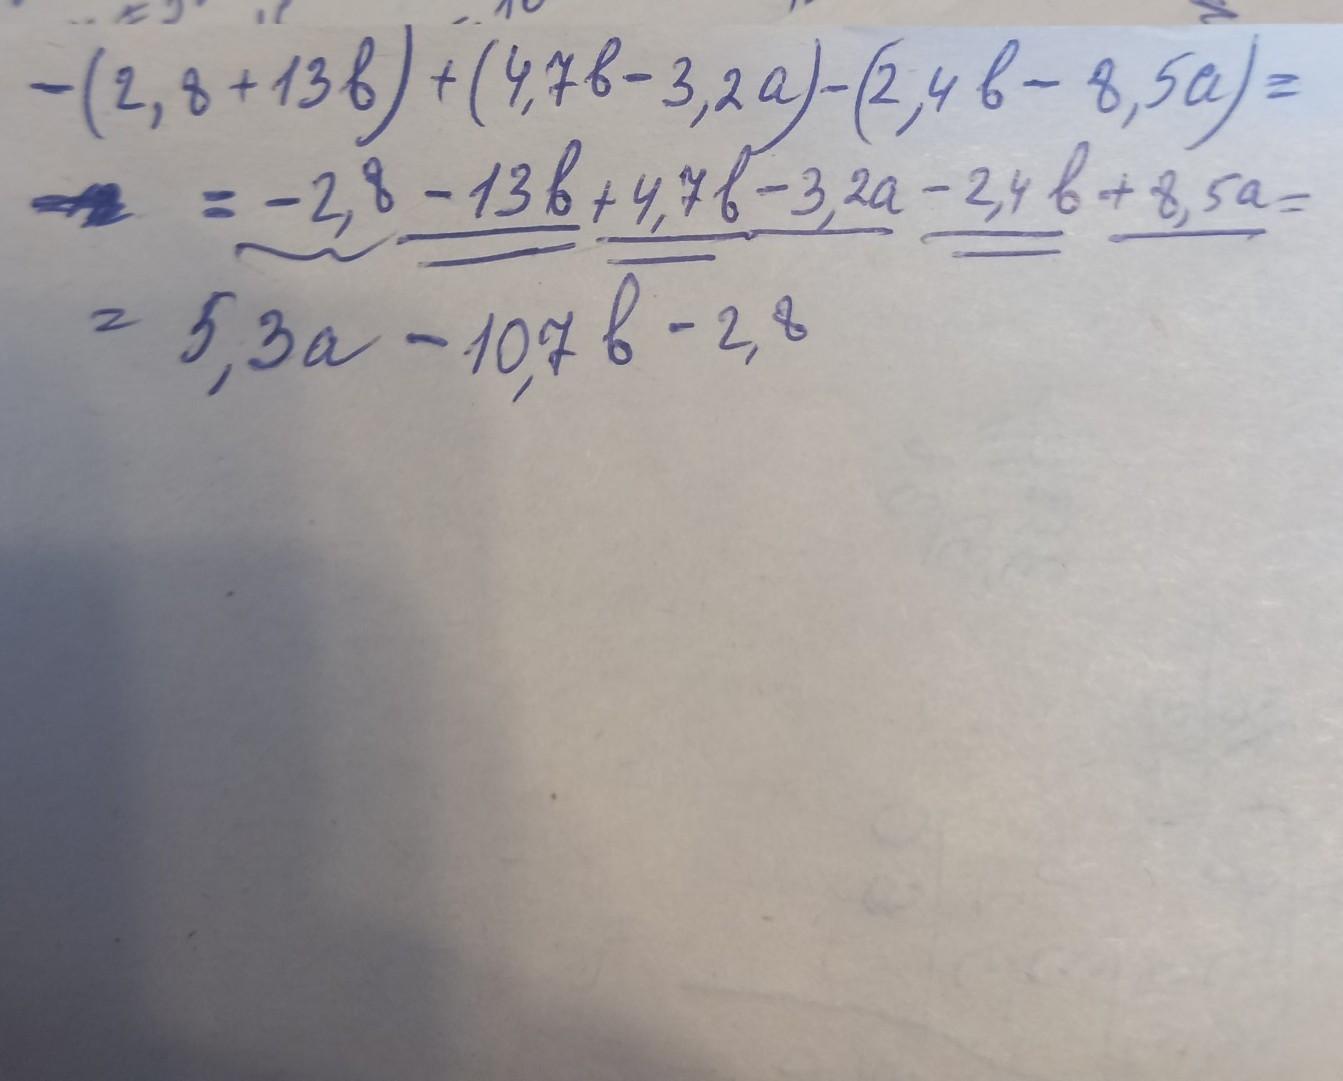 -(2,8+13в)+(4,7в-3,2а)-(2,4в-8,5а)=
=-2,8-13в+4,7в-3,2а-2,4в+8,5а=
= 5,3а-10,7в-2,8